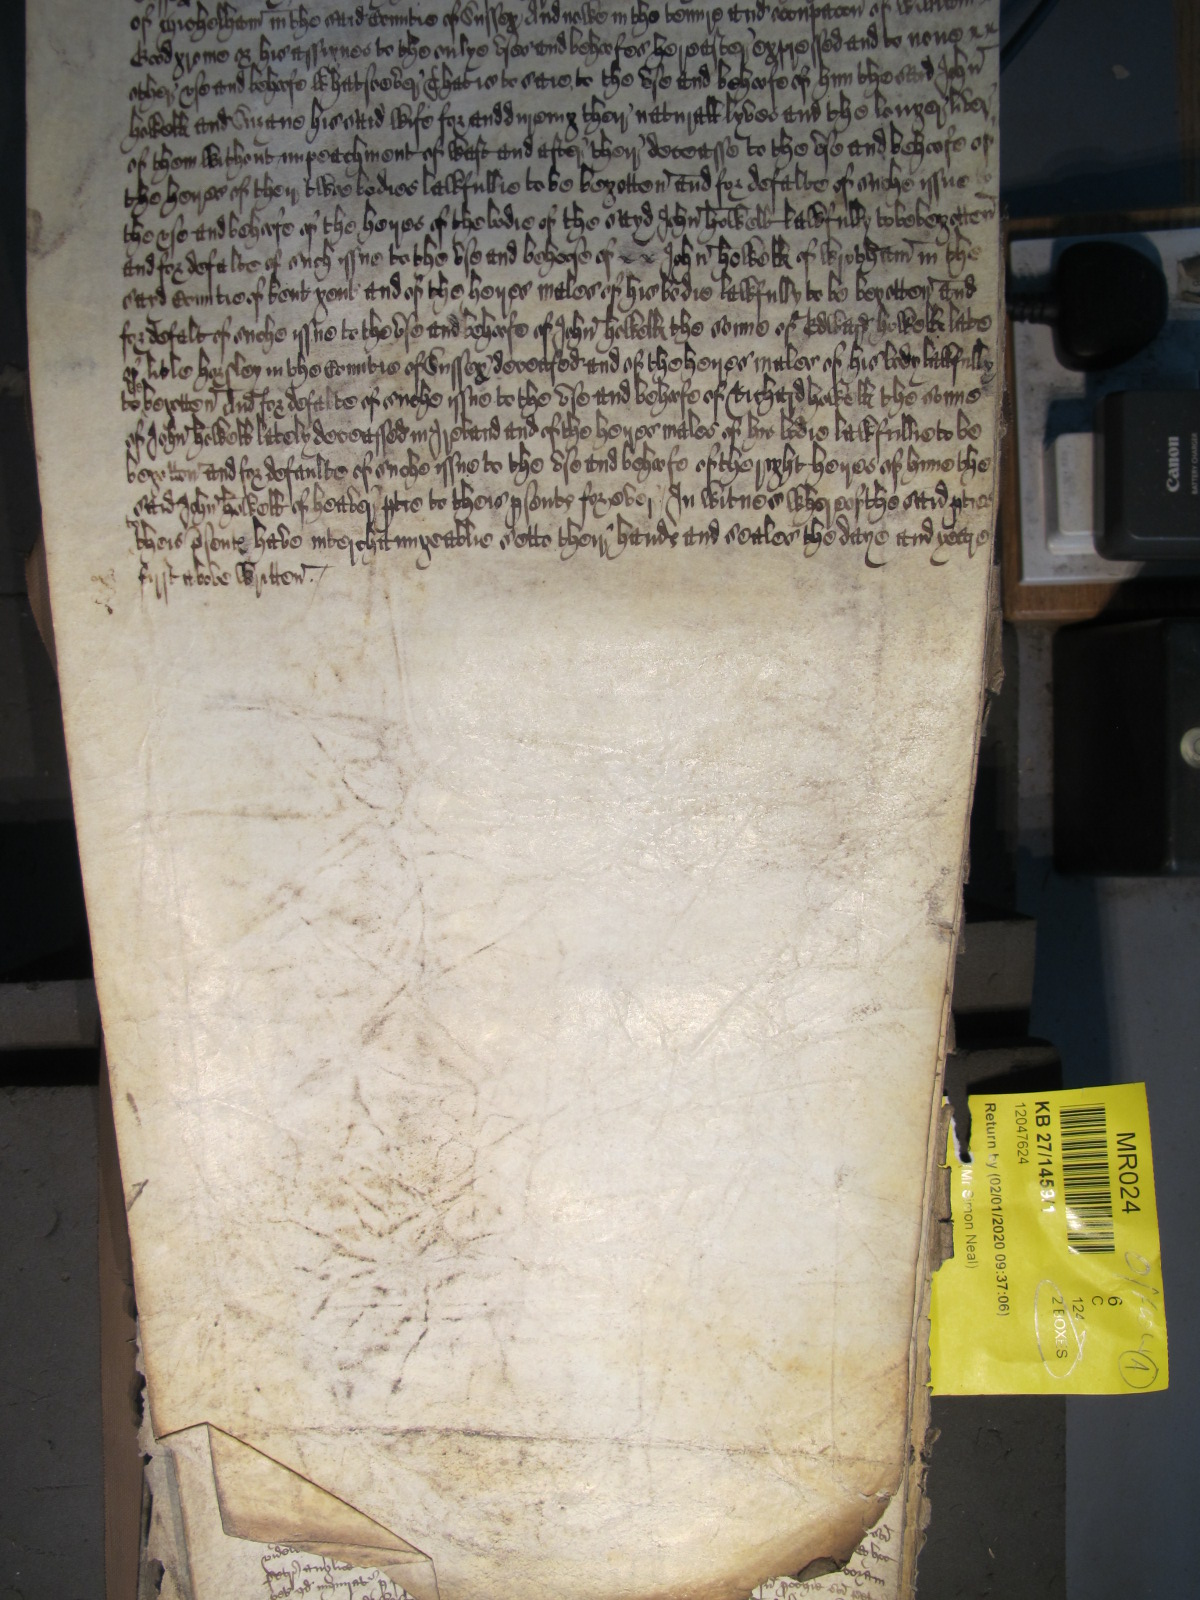 of Michelham in the said Countie of Sussex And nowe in the tenure and occupacon of William
or his assignes to the onlye vses and behoofes hereafter expressed and to none
other vse and behoofe Whatsoever That is to saie to the vse and behoofe of him the said John
howell and his said wife for and duringe their naturall lyves and the longer liver
of them without impeachment of wast and after their deceasse to the vse and behoofe of
the heyres of their twoe bodies lawfullie to be begotten and for defalte of suche issue to
the vse and behoofe of the heyres of the bodie of the sayd John howell lawfully to be begotten
and for defalte of such issue to the vse and behoofe of John howell of Wrotham in the
said Countie of kent gent and of the heyres males of his bodie lawfully to be begotten And
for defalt of suche issue to the vse and behoofe of John howell the sonne of Edward howell late
of litle horsley in the Countie of Sussex deceased and of the heyres males of his body lawfully
to be begotten And for defalte of suche issue to the vse and behoofe of Richard howell the sonne
of John howell lately deceassed in Ireland and of the heyres males of his bodie lawfullie to be
begotten and for defaulte of suche issue to the vse and behoofe of the right heyres of hime the
said John howell of ptie to theis psents for ever / In witnes wherof the said pties
to theis psents have interchaungeablie sette their hands and seales the daye and yeare
first above written ./
Canon
MR024
KB 27/1459/1
12047624
Return by (02/01/2020 09:37:06)
(Mr Simon Neal)
6
C
124
2 BOXES
1